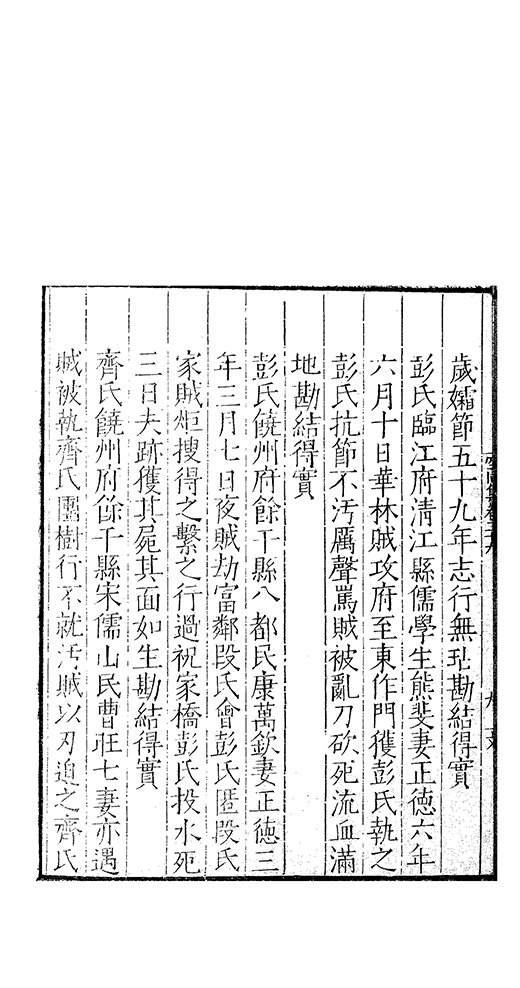 歲孀節五十九年志行無玷勘結得實
彭氏臨江府清江縣儒學生熊斐妻正德六年
六月十日華林賊攻府至東作門獲彭氏執之
彭氏抗節不汚厲聲罵賊被亂刀砍死流血滿
地勘結得實
彭氏饒州府餘干縣八都民康萬欽妻正德三
年三月七日夜賊劫富鄰段氏會彭氏匿段氏
家賊炬搜得之繫之行過祝家橋彭氏投水死
三日夫跡獲其屍其面如生勘結得實
齊氏饒州府餘干縣宋儒山民曹旺七妻亦遇
賊被執齊氏團樹行不就汚賊以刃迫之齊氏